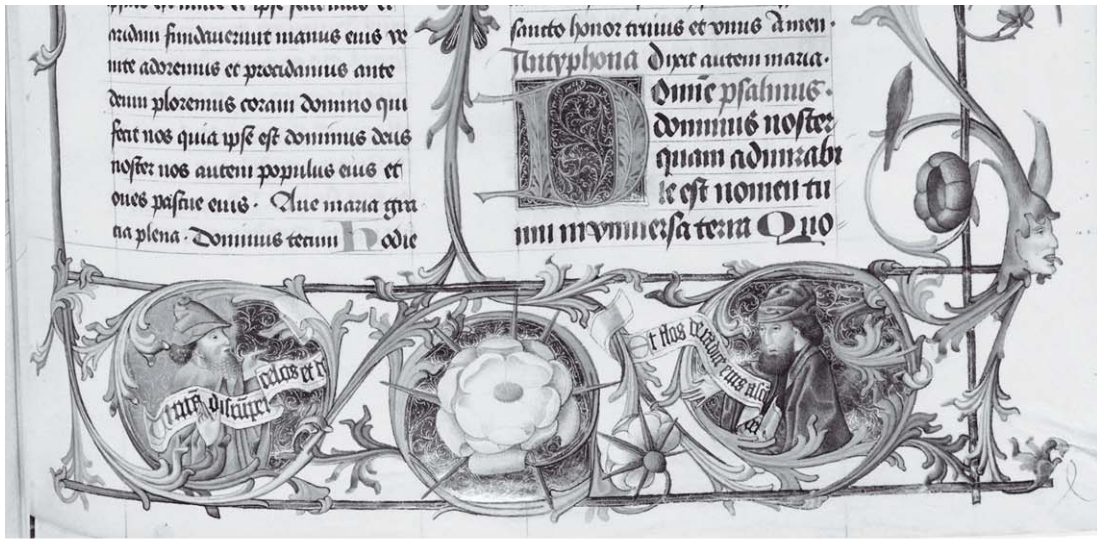 aridam fundauerunt manus eius ve
nite adoremus et procidamus ante
deum ploremus coram domino qui
fecit nos quia ipse est dominus deus
noster nos autem populus eius et
oues pascue eius · Aue maria gra
tia plena · Dominus tecum Hodie
sancto honor trinus et vnus Amen ·
Antyphona Dixit autem maria ·
Dominē psalmus ·
dominus noster
quam admirabi
le est nomen tu
um in vniuersa terra Quo
celos et d
Et flos de radice eius ascē